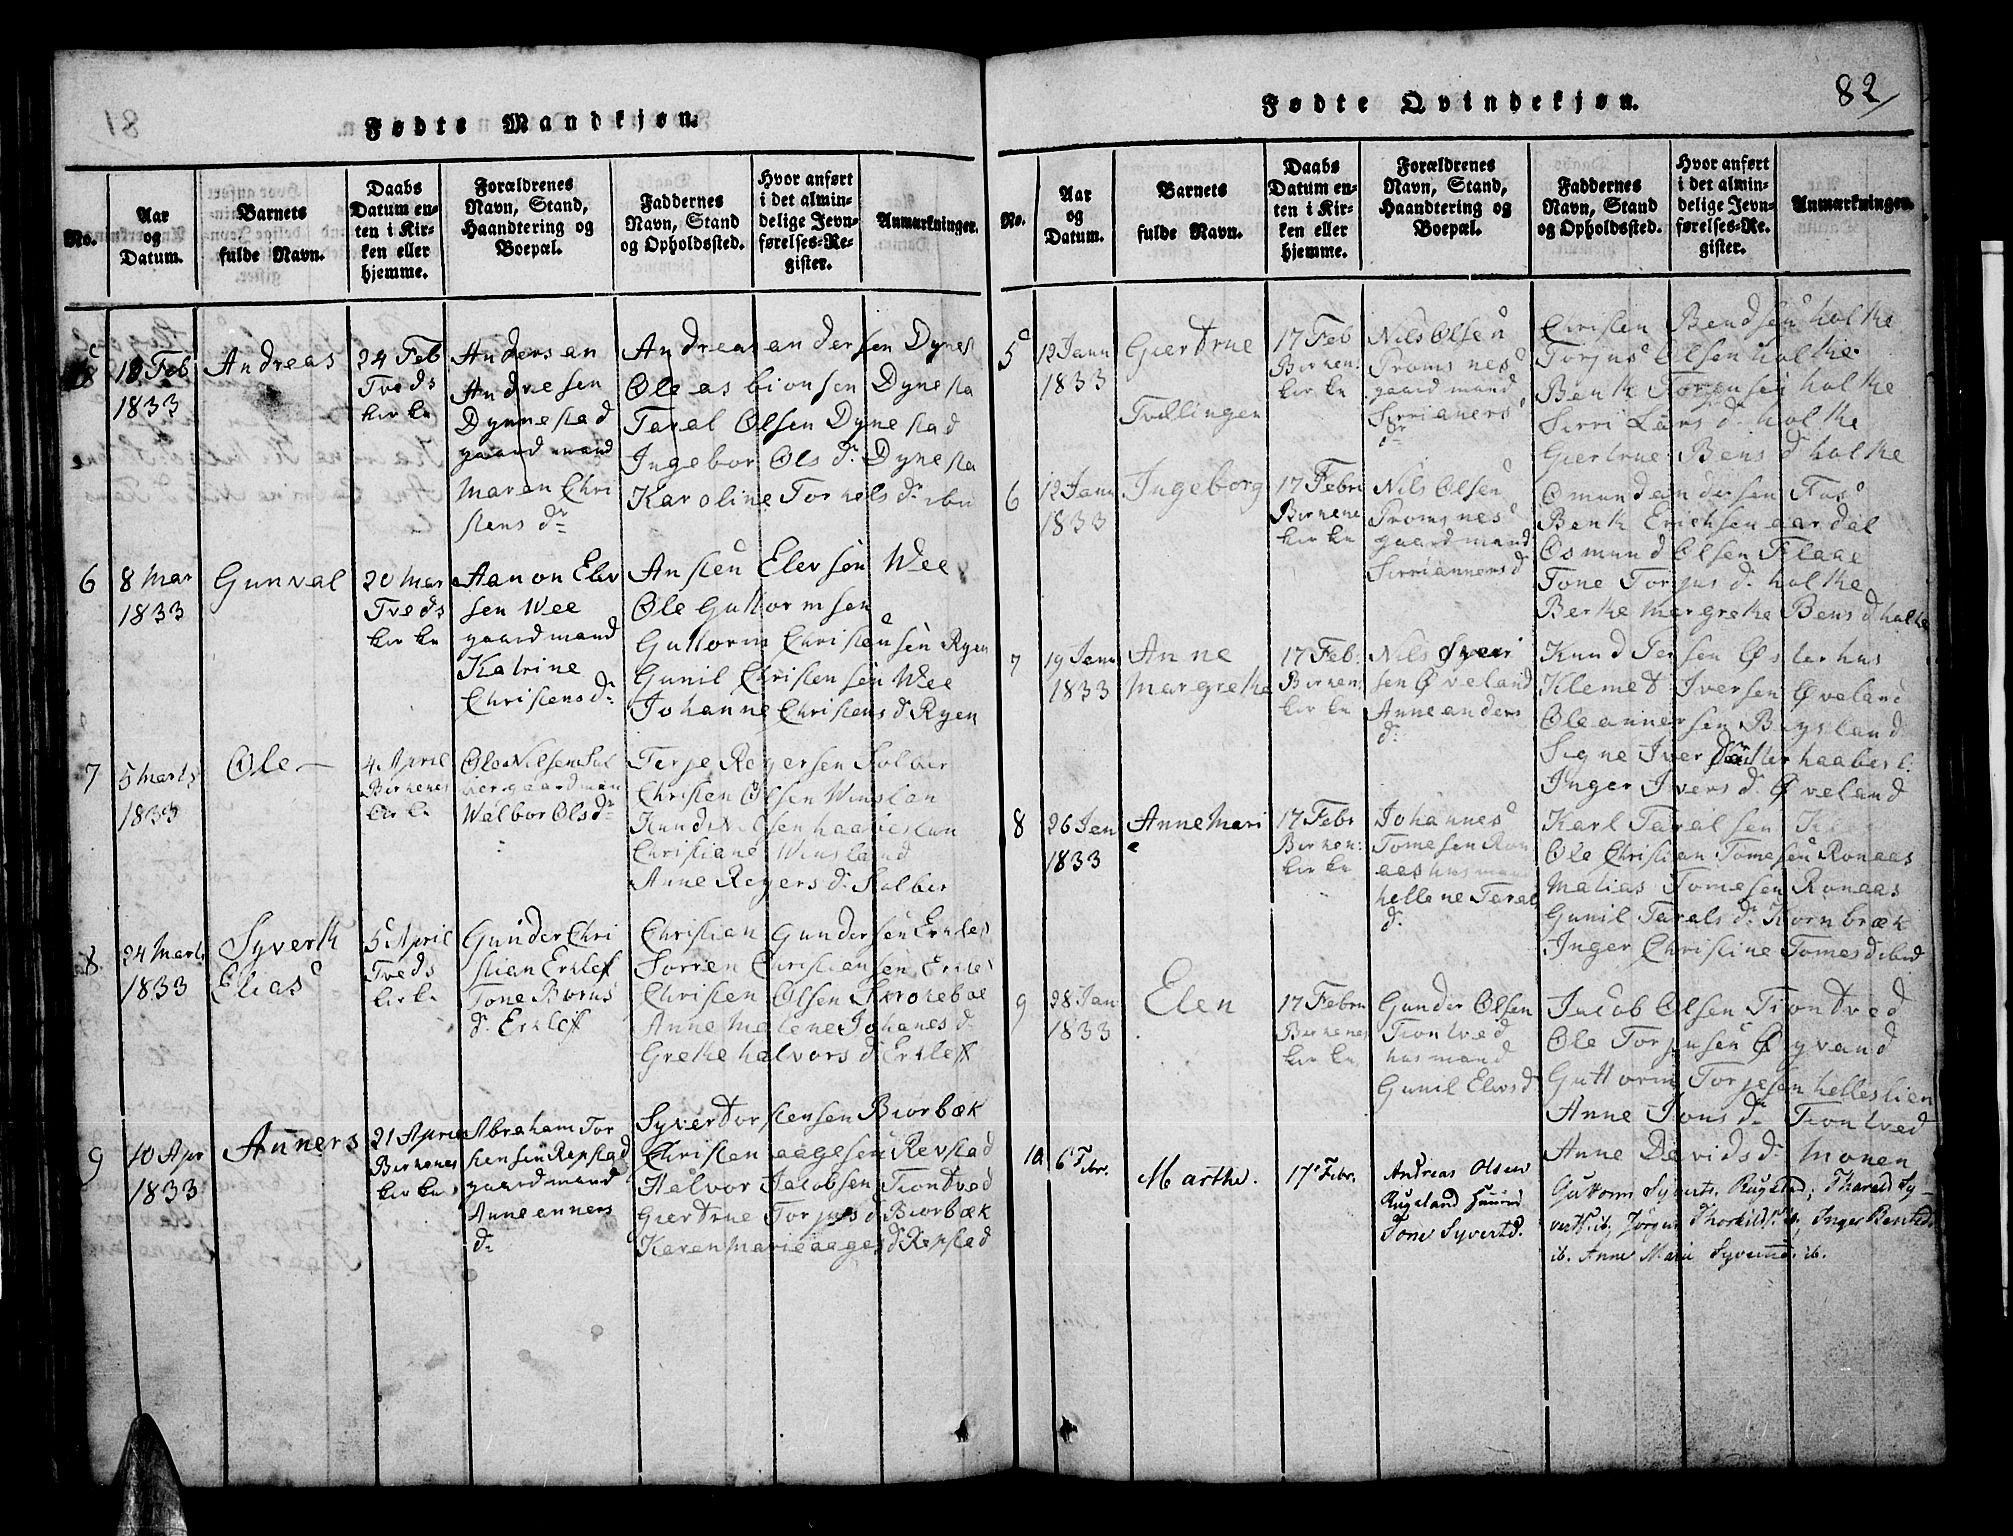 81
Fødte Mandkjøn.
No.
Aar
og
Datum.
Barnets
fulde Navn.
Daabs
Datum en-
ten i Kir-
ken eller
hjemme.
Forældrenes
Navn, Stand,
Haandtering og
Boepæl.
Faddernes
Navn, Stand
og Opholdssted.
Hvor anført
i det almin-
delige Jevn-
førelses-Re-
gister.
Anmærkninger.
18 Feb
1833
Andreas
24 Feb
Tveds
kir ke
Anders an
dresen
Dynnestad
gaard mand
Maren Chri
stens dr
Andreas andersen Dynes
Ole asbionsen Dynesta
Taral Olsen Dynestad
Ingebor Ols dr Dynesta
Karoline Torkels dr ibn
6
8 Mar
1833
Gunval
20 Mar
Tveds
kir ke
Aanon Elev
sen Wee
gaard mand
Katrine
Christens dr
Ansten Elevsen Wee
Ole Guttormsen
Guttorm Christensen Ryen
Gunil Christensen Wee
Johanne Christens d Ryen
7
5 Marts
1833
Ole
4 April
Birkenes
kir ke
Ole Nilsen Sol
ber gaardman
Walbor Ols dr
Terje Reyersen Solber
Christen Olsen Winslan
Knud Nilsen haabeslan
Christiane Winsland
Anne Reyers d. Solber
8
24 Marts
1833
Syverth
Elias
5 April
Tveds
kir ke
Gunder Chri
stian Erklef
Tone Biørns
d. Erklef
Christian Gundersen Erklef
Sørren Christiansen Erklef
Christen Olsen Strokebae
Anne Malene Johanes d.
Grethe halvors d Erklef
9
10 Apr
1833
Anners
21 April
Birkenes
kir ke
Abraham Tor
stensen Repstad
gaard mand
Anne enners
dr
Syver Torstensen Biorbæk
Christen aagesen Revstad
Halvor Jacobsen Tiontved
Giertrue Torjus d Biorbæk
Karen Marie aages d Repstad
82
Fødte Qvindekjøn.
No.
Aar
og
Datum.
Barnets
fulde Navn.
Daabs
Datum en-
ten i Kir-
ken eller
hjemme.
Forældrenes
Navn, Stand,
Haandtering og
Boepæl.
Faddernes
Navn, Stand
og Opholdssted.
Hvor anført
i det almin-
delige Jevn-
førelses-Re-
gister.
Anmærkninger.
5
12 Janu
1833
Giertrue
Tvillinger
17 Feb
Birkene
kir ke
Nils Olsen
Tromsnes
gaard mand
Sirri aners
dr
Christen Bendsen holthe
Torjus Olsen holthe
Benth Torjusen holthe
Sirri Lars d. holthe
Giertrue Bens d holthe
6
12 Janu
1833
Ingeborg
17 Febr
Birkene
kir ke
Nils Olsen
Tromsnes
gaard mand
Sirri anners d
Omund andersen Fos
Benth Erichsen aardal
Osmund Olsen Flaae
Tone Torjus d. holthe
Berthe Margrethe Bens d holthe
7
19 Janu
1833
Anne
Margrethe
17 Feb
Birkene
kir ke
Nils Iver
sen Øveland
Anne anders
dr
Knud Jensen Østerhus
Klemet Iversen Øveland
Ole annersen Bigsland
Signe Iver Datter haabesl.
Inger Ivers d. Øveland
8
26 Jan
1833
Anne Mari
e
17 Febr
Birkene
kir ke
Johannes
Tomesen Ron
aas husman
hellene Taral
dr
Karl Taralsen
Ole Christian Tomesen Ronaas
Matias Tomesen Ronaas
Gunil Tarals d. Kornbræk
Inger Christine Tomes d ibid
9
28 Jan
1833
Elen
17 Febru
Birkenes
kir ke
Gunder Olsen
Tiontved
husmand
Gunil Elevs d
Jacob Olsen Tiontved
Ole Torjusen Øygvand
Guttorm Torjesen helleslien
Anne Jons dr Tiontved
Anne Davids dr Monen
10
6 Febr.
Marthe.
17 Febr.
Andreas Olsen
Rugsland
Tone Syvertsd.
Guttorm Syverts. Rugsland; Tharald Sy-
verts. ib. Jørgen Thorkilds. ib. Inger Bentsd.
ib. Anne Marie Syvertsd. ib.